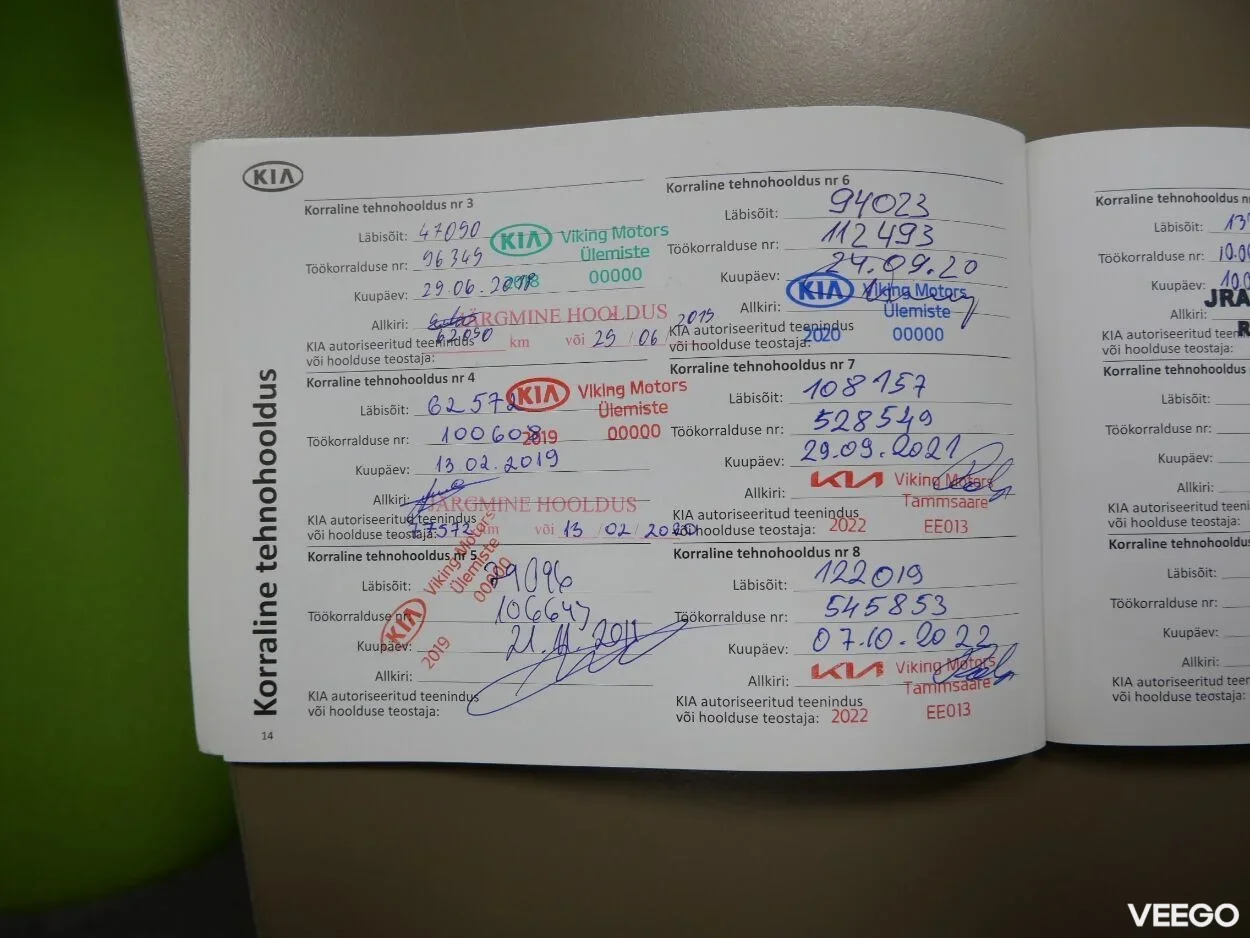 KIA
Korraline tehnohooldus
Korraline tehnohooldus nr 3
Läbisõit: 47090
Töökorralduse nr: 96345
Kuupäev: 29.06.2018
Allkiri:
KIA autoriseeritud teenindus
või hoolduse teostaja:
KIA Viking Motors
Ülemiste
2018 00000
JÄRGMINE HOOLDUS
62090 km või 29 / 06 / 2019
Korraline tehnohooldus nr 4
Läbisõit: 62572
Töökorralduse nr: 100608
Kuupäev: 13.02.2019
Allkiri:
KIA autoriseeritud teenindus
või hoolduse teostaja:
KIA Viking Motors
Ülemiste
2019 00000
JÄRGMINE HOOLDUS
77572 km või 13 / 02 / 2020
Korraline tehnohooldus nr 5
Läbisõit:
Töökorralduse nr: 106647
Kuupäev: 21.11.
Allkiri:
KIA autoriseeritud teenindus
või hoolduse teostaja:
KIA Viking Motors
Ülemiste
2019 00000
14
Korraline tehnohooldus nr 6
Läbisõit: 94023
Töökorralduse nr: 112493
Kuupäev: 24.09.20
Allkiri:
KIA autoriseeritud teenindus
või hoolduse teostaja:
KIA Viking Motors
Ülemiste
2020 00000
Korraline tehnohooldus nr 7
Läbisõit: 108157
Töökorralduse nr: 528549
Kuupäev: 29.09.2021
Allkiri:
KIA autoriseeritud teenindus
või hoolduse teostaja:
KIA Viking Motors
Tammsaare
2022 EE013
Korraline tehnohooldus nr 8
Läbisõit: 122019
Töökorralduse nr: 545853
Kuupäev: 07.10.2022
Allkiri:
KIA autoriseeritud teenindus
või hoolduse teostaja:
KIA Viking Motors
Tammsaare
2022 EE013
Korraline tehnohooldus
Läbisõit: 13
Töökorralduse nr: 10.00
Kuupäev: 10.0
JRA
Allkiri:
R
KIA autoriseeritud teenin
või hoolduse teostaja:
Korraline tehnohooldus
Läbisõit:
Töökorralduse nr:
Kuupäev:
Allkiri:
KIA autoriseeritud teenindus
või hoolduse teostaja:
Korraline tehnohooldus
Läbisõit:
Töökorralduse nr:
Kuupäev:
Allkiri:
KIA autoriseeritud teenindus
või hoolduse teostaja:
VEEGO